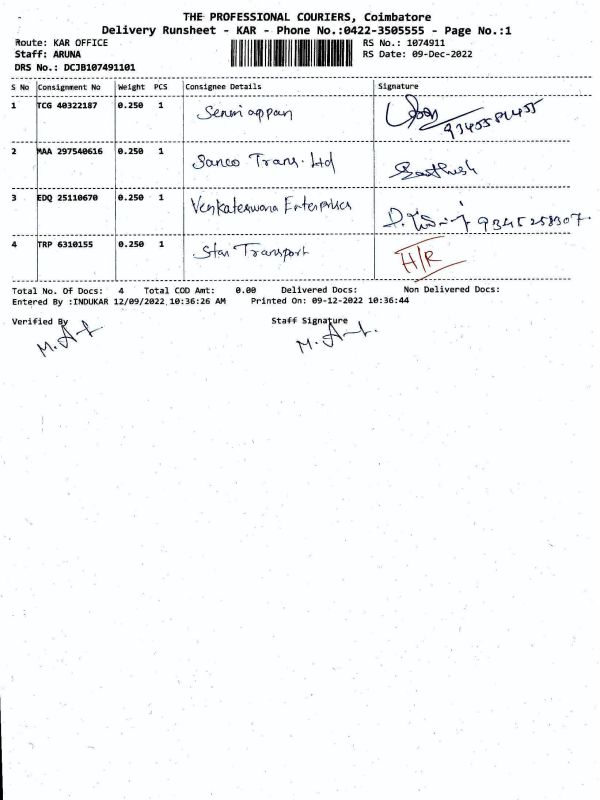 THE PROFESSIONAL COURIERS, Coimbatore
Delivery Runsheet - KAR - Phone No.:0422-3505555 - Page No.:1
Route: KAR OFFICE RS No.: 1074911
Staff: ARUNA RS Date: 09-Dec-2022
DRS No.: DCJB107491101
S No Consignment No Weight PCS Consignee Details Signature
1 TCG 40322187 0.250 1
2 MAA 297540616 0.250 1 Sanco Trans. Ltd
3 EDQ 25110670 0.250 1 Venkateswara Enterprises 9345258307
4 TRP 6310155 0.250 1 Star Transport H/R
Total No. Of Docs: 4 Total COD Amt: 0.00 Delivered Docs: Non Delivered Docs:
Entered By :INDUKAR 12/09/2022 10:36:26 AM Printed On: 09-12-2022 10:36:44
Verified By Staff Signature